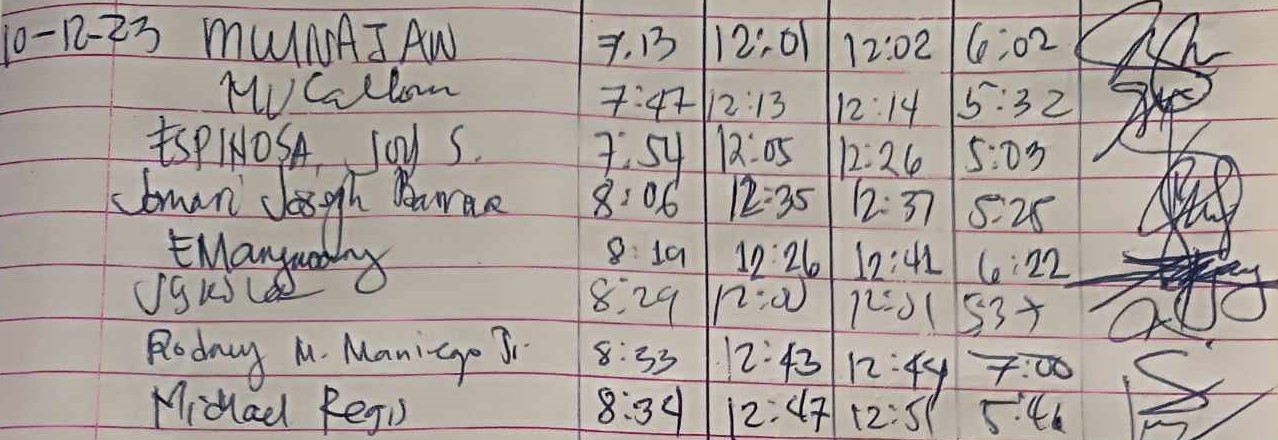 10-12-23 MWINAJAW 7:13 12:01 12:02 6:02
MV Callon 7:47 12:13 12:14 5:32
ESPINOSA, JOY S. 7:54 12:05 12:26 5:03
Jomari Joseph 8:06 12:35 12:37 5:25
8:19 12:26 12:41 6:22
8:29 12:00 12:01 537
Rodney M. Maniego Jr. 8:33 12:43 12:44 7:00
Michael Regis 8:34 12:47 12:51 5:46